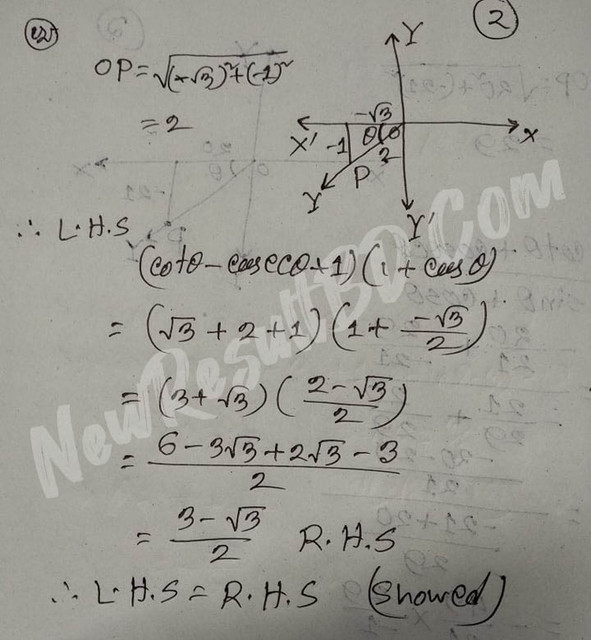 2
OP = √(-√3)² + (-1)²
= 2
Y
-√3
X' -1 θ O X
2
P
Y
Y'
∴ L.H.S
(cotθ - cosecθ + 1) (1 + cosθ)
= (√3 + 2 + 1) (1 + -√3/2)
= (3 + √3) (2 - √3/2)
= 6 - 3√3 + 2√3 - 3/2
= 3 - √3/2 R.H.S
∴ L.H.S = R.H.S (Showed)
NewResultBD.Com